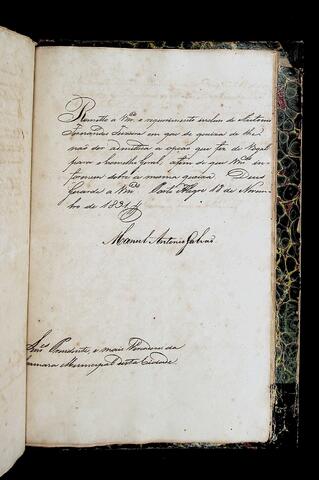 Remetto a Vm.ces o requerimento incluso de Antonio
Fernandes Teixeira em que se queixa de lhe
não ser admittida a opção que fez de Vogal
para o Conselho Geral, afim de que Vm.ces in-
formem sobre a mesma queixa. Deos
Guarde a Vm.ces Porto Alegre 12 de Novem-
bro de 1831
Manuel Antonio Galvão
Snr.es Presidente, e mais Vereadores da
Camara Municipal desta Cidade